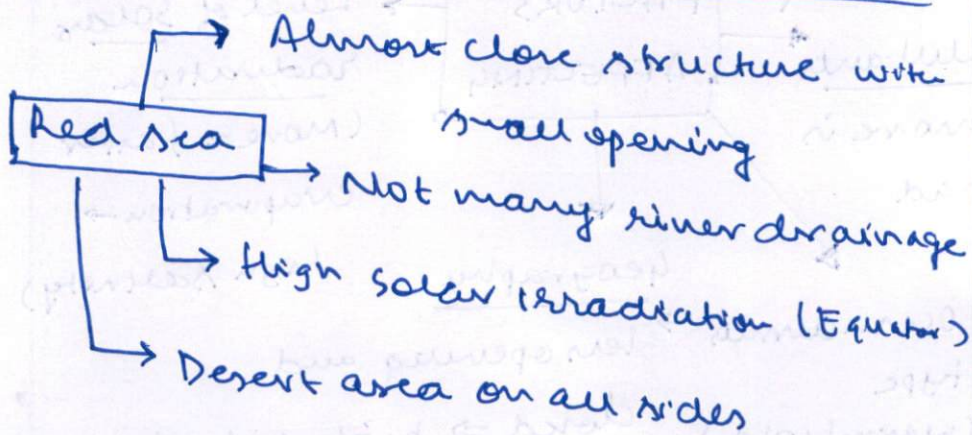 Almost close structure with
small opening
Red sea
Not many river drainage
High solar irradiation (Equator)
Desert area on all sides